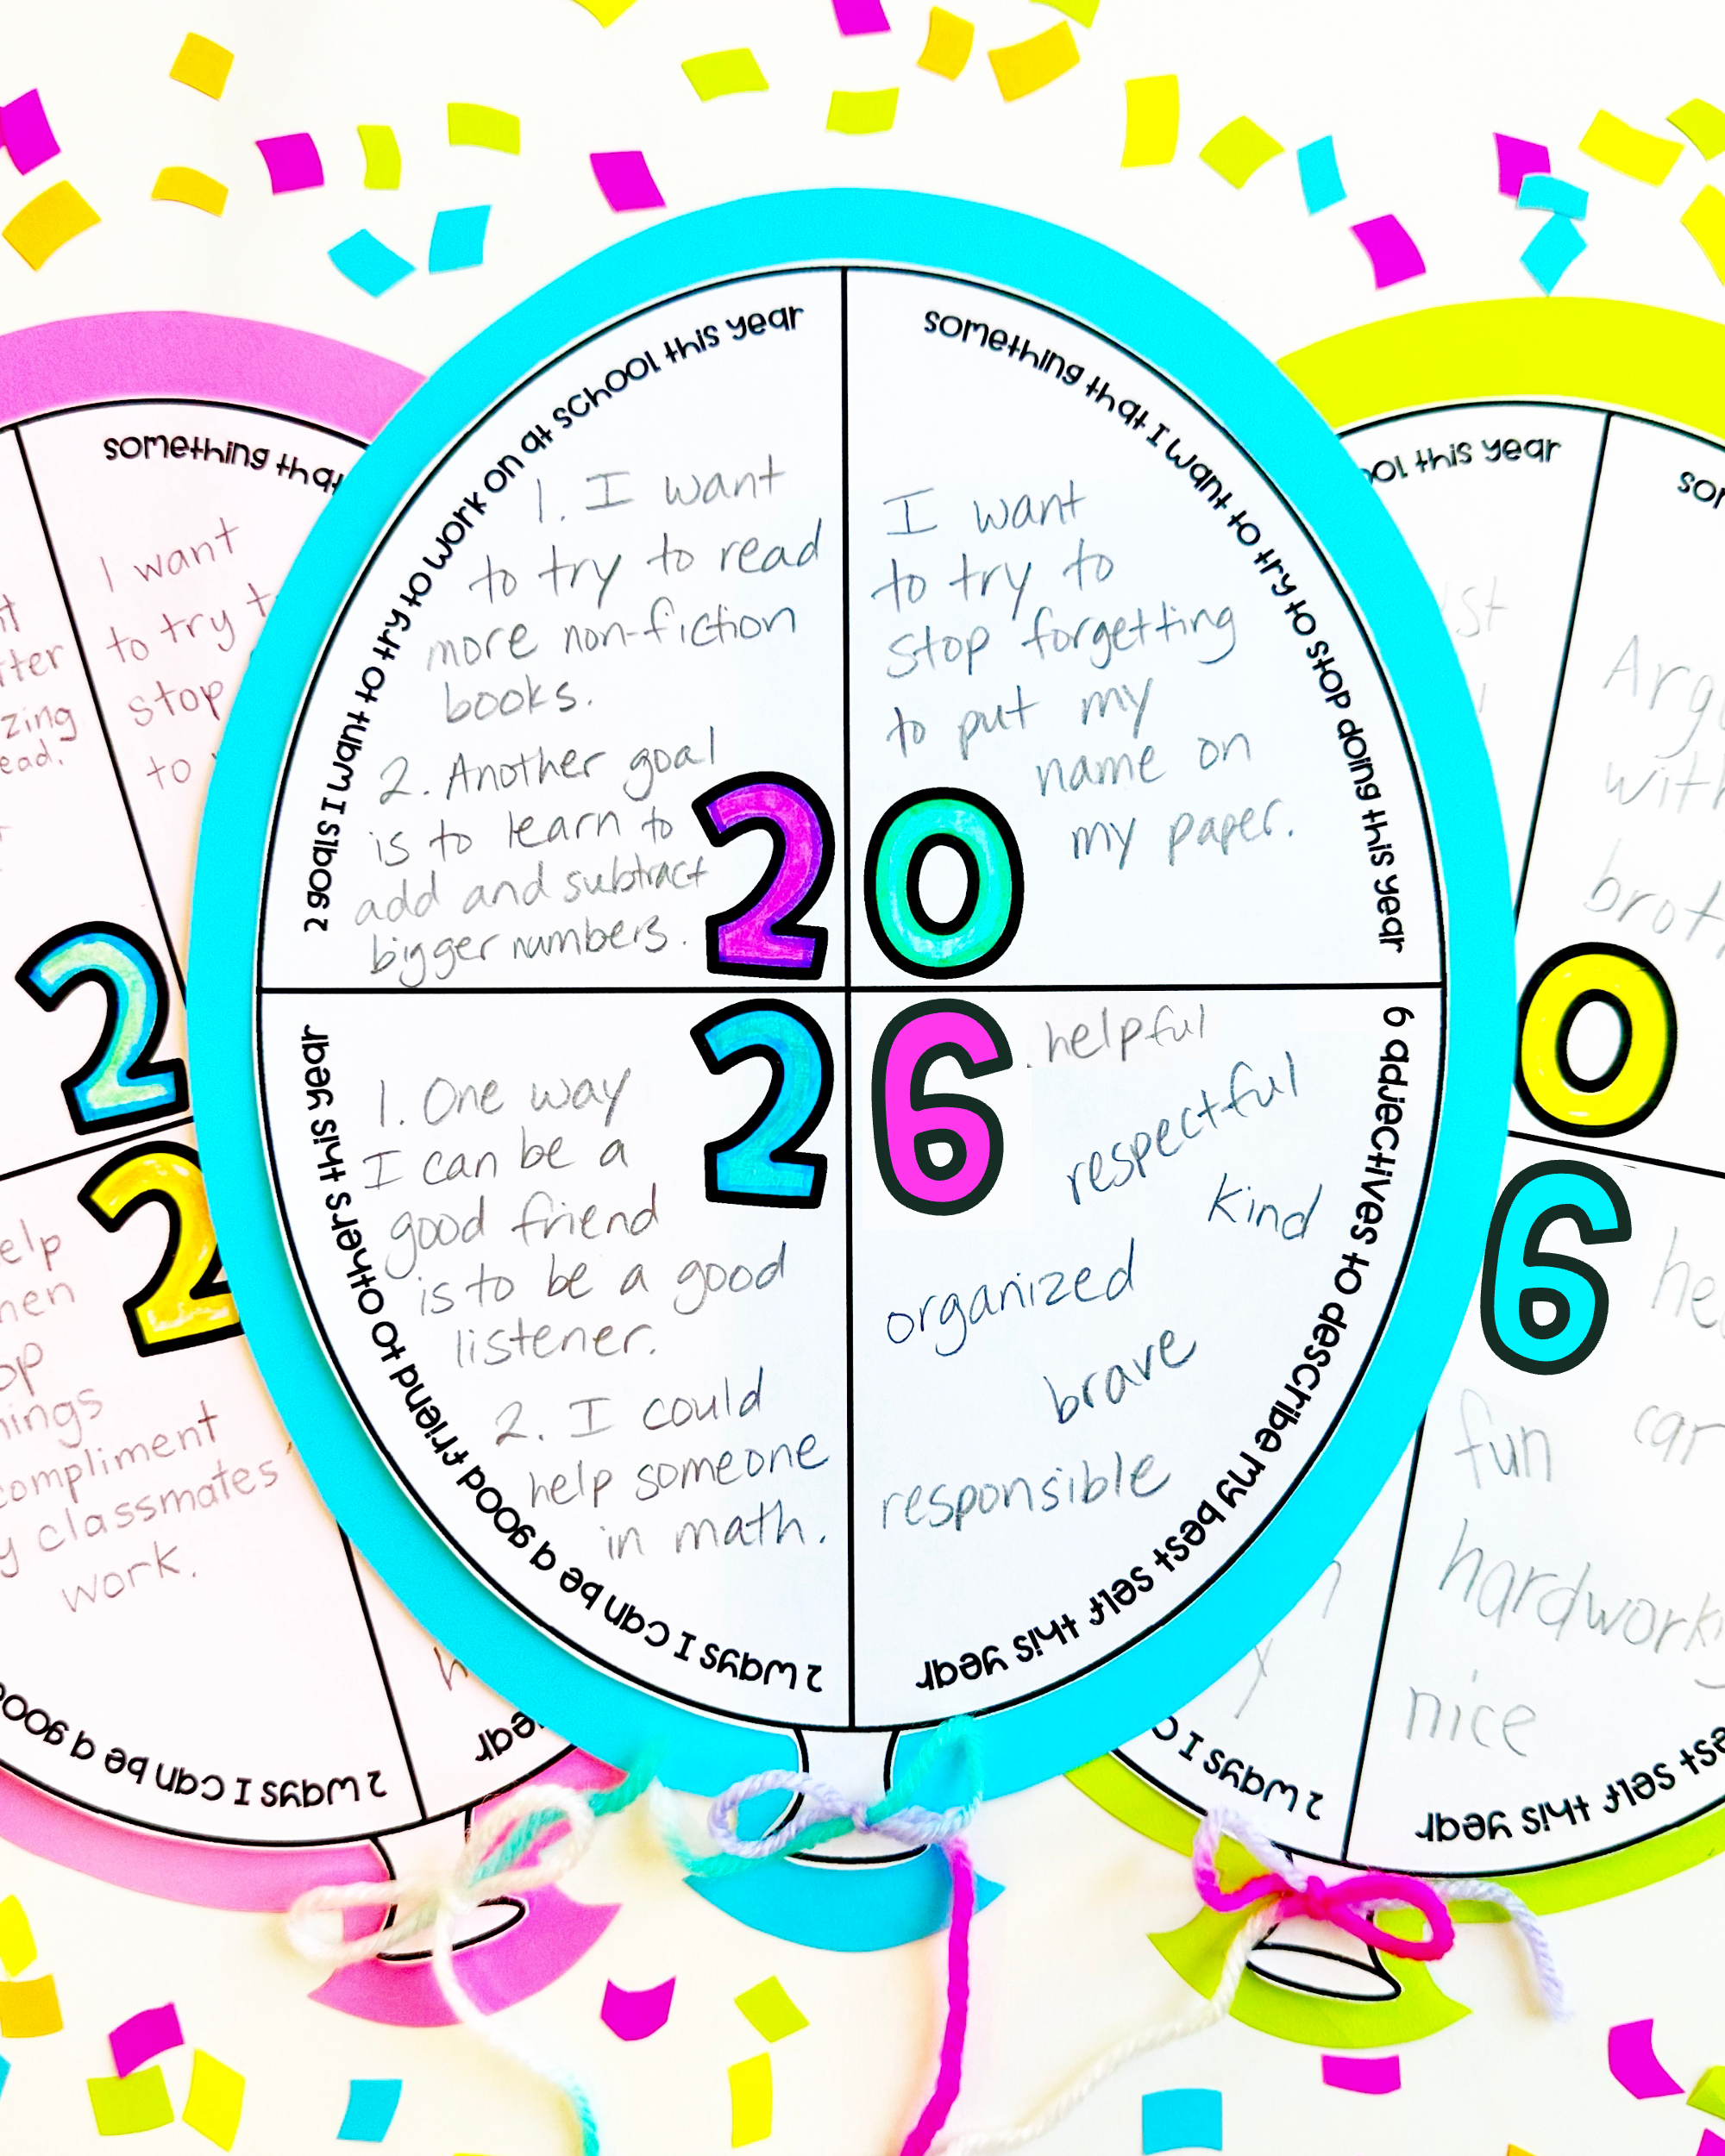 2 goals I want to try to work on at school this year
1. I want
to try to read
more non-fiction
books.
2. Another goal
is to learn to
add and subtract
bigger numbers.
something that I want to try to stop doing this year
I want
to try to
stop forgetting
to put my
name on
my paper.
20
26
2 ways I can be a good friend to others this year
1. One way
I can be a
good friend
is to be a good
listener.
2. I could
help someone
in math.
6 adjectives to describe my best self this year
helpful
respectful
kind
organized
brave
responsible
something that
I want
to try
stop
to
2
2
compliment
classmates
work.
2 ways I can be a good
year
this year
0
6
fun
nice
2 ways I
self this year